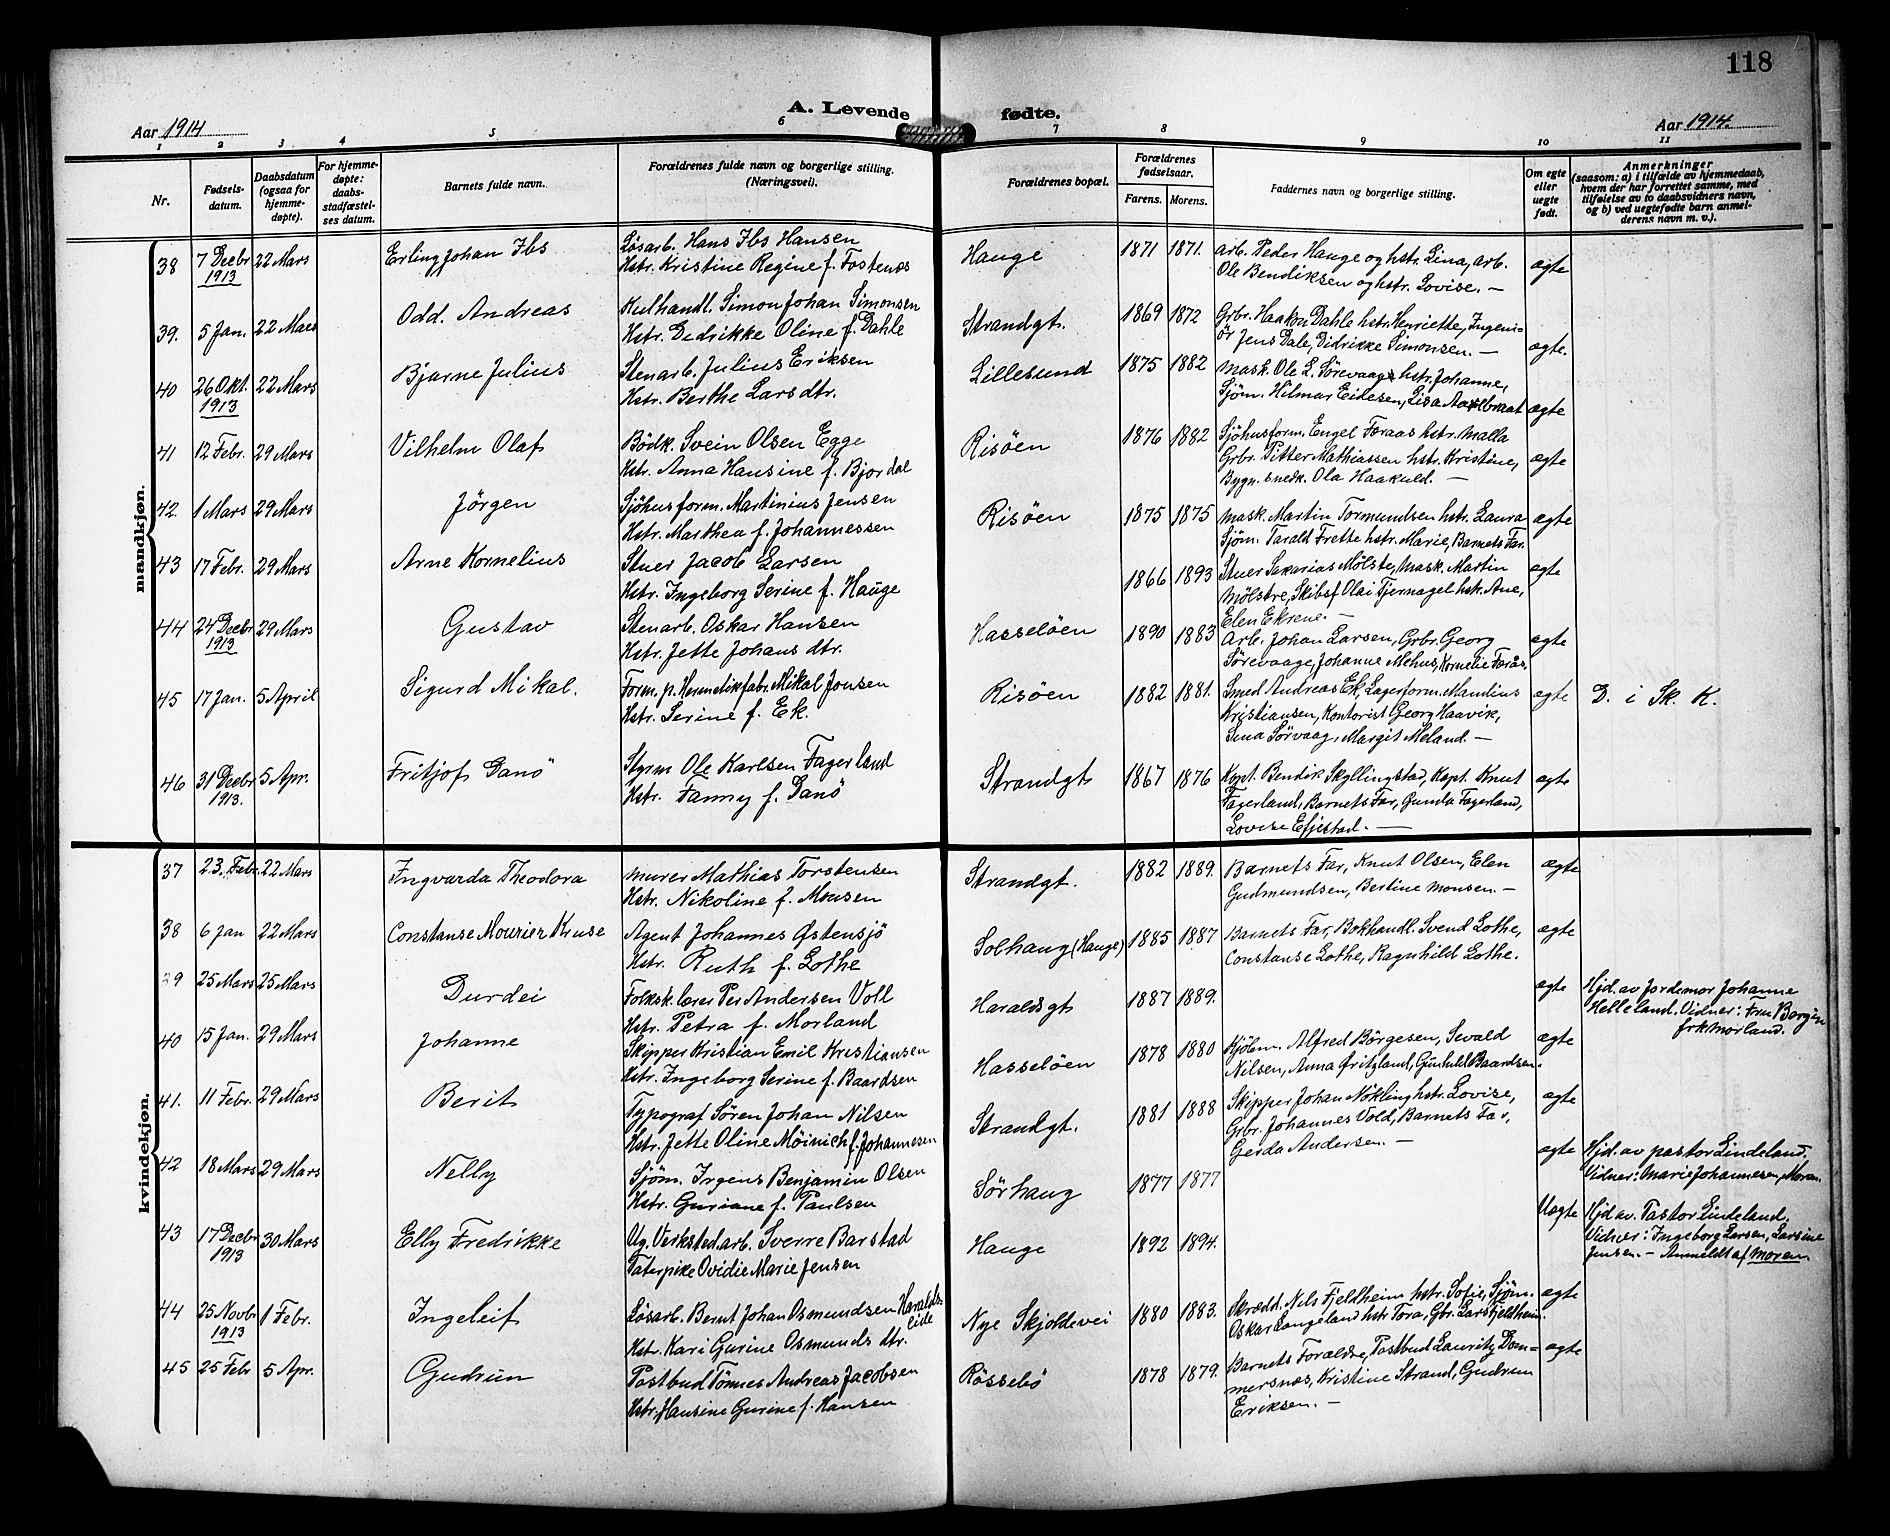 118
A. Levende fødte.
Aar 1914
Aar 1914.
1 2 3 4 5 6 7 8 9 10 11
Nr.
Fødsels-datum.
Daabsdatum (ogsaa for hjemme-døpte).
For hjemme-døpte: daabs-stadfæstel-ses datum.
Barnets fulde navn.
Forældrenes fulde navn og borgerlige stilling. (Næringsvei).
Forældrenes bopæl.
Forældrenes fødselsaar.
Farens. Morens.
Faddernes navn og borgerlige stilling.
Om egte eller uegte født.
Anmerkninger (saasom: a) i tilfælde av hjemmedaab, hvem der har forrettet samme, med tilføielse av to daabsvidners navn, og b) ved uegtefødte barn anmel-derens navn m. v.).
mandkjøn.
38 7 Decbr 1913 22 Mars Erling Johan Ibs
Løsarb. Hans Ibs Hansen
Hstr. Kristine Regine f. Fostenæs
Hauge 1871 1871.
Arb. Peder Hauge og hstr. Lina, arb.
Ole Bendiksen og hstr. Lovise. —
ægte
39. 5 Jan. 22 Mars Odd. Andreas
Kulhandl. Simon Johan Simonsen
Hstr. Didrikke Oline f. Dahle
Strandgt. 1869 1872
Grbr. Haakon Dahle hstr. Henriette, Ingeni-
ör Jens Dale, Didrikke Simonsen. —
ægte.
40 26 Okt. 1913 22 Mars Bjarne Julius
Stenarb. Julius Eriksen
Hstr. Berthe Larsdtr.
Lillesund 1875 1882
Mask. Ole L. Sörevaag hstr. Johanne,
Sjöm. Hilmar Eidesen, Lisa
ægte
41 12 Febr. 29 Mars Vilhelm Olaf
Bödk. Svein Olsen Egge
Hstr. Anna Hansine f. Bjordal
Risöen 1876 1882
Sjöhusform. Engel Færaas hstr. Malla
Grbr. Pitter Mathiassen hstr. Kristine,
Bygn. snedk. Ola Haakuld. —
ægte
42. 1 Mars 29 Mars Jörgen
Sjöhusform. Martinius Jensen
Hstr. Marthea f. Johannessen
Risöen 1875 1875
Mask. Martin Tormundsen hstr. Laura
Sjöm. Tarald Frette hstr. Marie, Barnets Far.
ægte
43 17 Febr. 29 Mars Arne Kornelius
Stuer Jacob Larsen
Hstr. Ingeborg Serine f. Hauge
1866 1893
Stuer Sakarias Mölste, Mask. Martin
Mölstre, Skibsf. Olai Tjernagel hstr. Ane,
Elen Ekrene. —
ægte
44 24 Decbr 1913 29 Mars Gustav
Stenarb. Oskar Hansen
Hstr. Jette Johansdtr.
Hasselöen 1890 1883
Arb. Johan Larsen, Grbr. Georg
Sörevaage, Johanne Mehus, Kornelie Færås,
ægte
45 17 Jan. 5 April Sigurd Mikal.
Form. p. Hermetikfabr. Mikal Jonsen
Hstr. Serine f. Ek.
Risöen 1882 1881.
Smed Andreas Ek, Lagerform. Manilius
Kristiansen, Kontorist Georg Haavik,
Sina Sörvaag, Margit Meland. —
ægte D. i Sk. K.
46 31 Decbr 1913. 5 Apr. Fritjof Danö
Styrm Ole Karlsen Fagerland
Hstr. Fanny f. Danö
Strandgt 1867 1876
Kapt. Bendik Skyllingstad, Kapt. Knut
Fagerland, Barnets Far, Gunda Fagerland,
Lovise Efjestad. —
ægte
kvindekjøn.
37 23. Febr. 22 Mars Ingvarda Theodora
Murer Mathias Torstensen
Hstr. Nikoline f. Monsen
Strandgt. 1882 1889.
Barnets Far, Knut Olsen, Elen
Gudmundsen, Bertine Monsen. —
ægte
38 6 Jan 22 Mars Constanse Mourier Kruse
Agent Johannes Østensjö
Hstr. Ruth f. Lothe
Solhaug (Hauge) 1885 1887
Barnets Far, Bokhandl. Svend Lothe,
Constanse Lothe, Ragnhild Lothe.
ægte
39 25 Mars 25 Mars Durdei
Folksk.lærer Per Andersen Voll
Hstr. Petra f. Morland
Haraldsgt 1887 1889.
ægte
Hjd. av Jordemor Johanne
Helleland. Vidner: Fru Borgen
frk Morland.
40 15 Jan. 29 Mars Johanne
Skipper Kristian Emil Kristiansen
Hstr. Ingeborg Serine f. Baardsen
Hasselöen 1878 1880
Kjölm. Alfred Börgesen, Sevald
Nilsen, Anna Öritzland, Gunhild Baardsen.
ægte
41. 11 Febr. 29 Mars Berit
Typograf Sören Johan Nilsen
Hstr. Jette Oline Möinich f. Johannesen
Strandgt. 1881 1888
Skipper Johan Nökling hstr. Lovise,
Grbr. Johannes Vold, Barnets Far,
Gerda Andersen. —
ægte
42 18 Mars 29 Mars Nelly
Sjöm. Irgens Benjamin Olsen
Hstr. Guriane f. Paulsen
Sörhaug 1877 1877
ægte
Hjd. av pastor Lindeland.
Vidner: Marie Johannesen, Moren.
43 17 Decbr 1913 30 Mars Elly Fredrikke
Ug. Verksted.arb. Sverre Barstad
Taterpike Ovidie Marie Jensen
Hauge 1892 1894.
Uægte
Hjd av. Pastor Lindeland.
Vidner: Ingeborg Larsen, Larsine
Jensen. — Anmeldt af Moren
44 25 Novbr 1913 1 Febr. Ingeleif
Løsarb. Bernt Johan Osmundsen Haralds-
eide
Hstr. Kari Gurine Osmundsdtr.
Nye Skjoldevei 1880 1883.
Skrædd. Nils Fjeldheim hstr. Sofie, Sjöm.
Oskar Langeland hstr Tora, Gbr. Lars Fjeldheim.
ægte
45 25 Febr 5 Apr. Gudrun
Postbud Tönnes Andreas Jacobsen
Hstr. Hansine Gurine f. Hansen
Rossebö 1878 1879.
Barnets Forældre, Postbud Lauritz Dom-
mersnæs, Kristine Strand, Gudrun
Eriksen. —
ægte